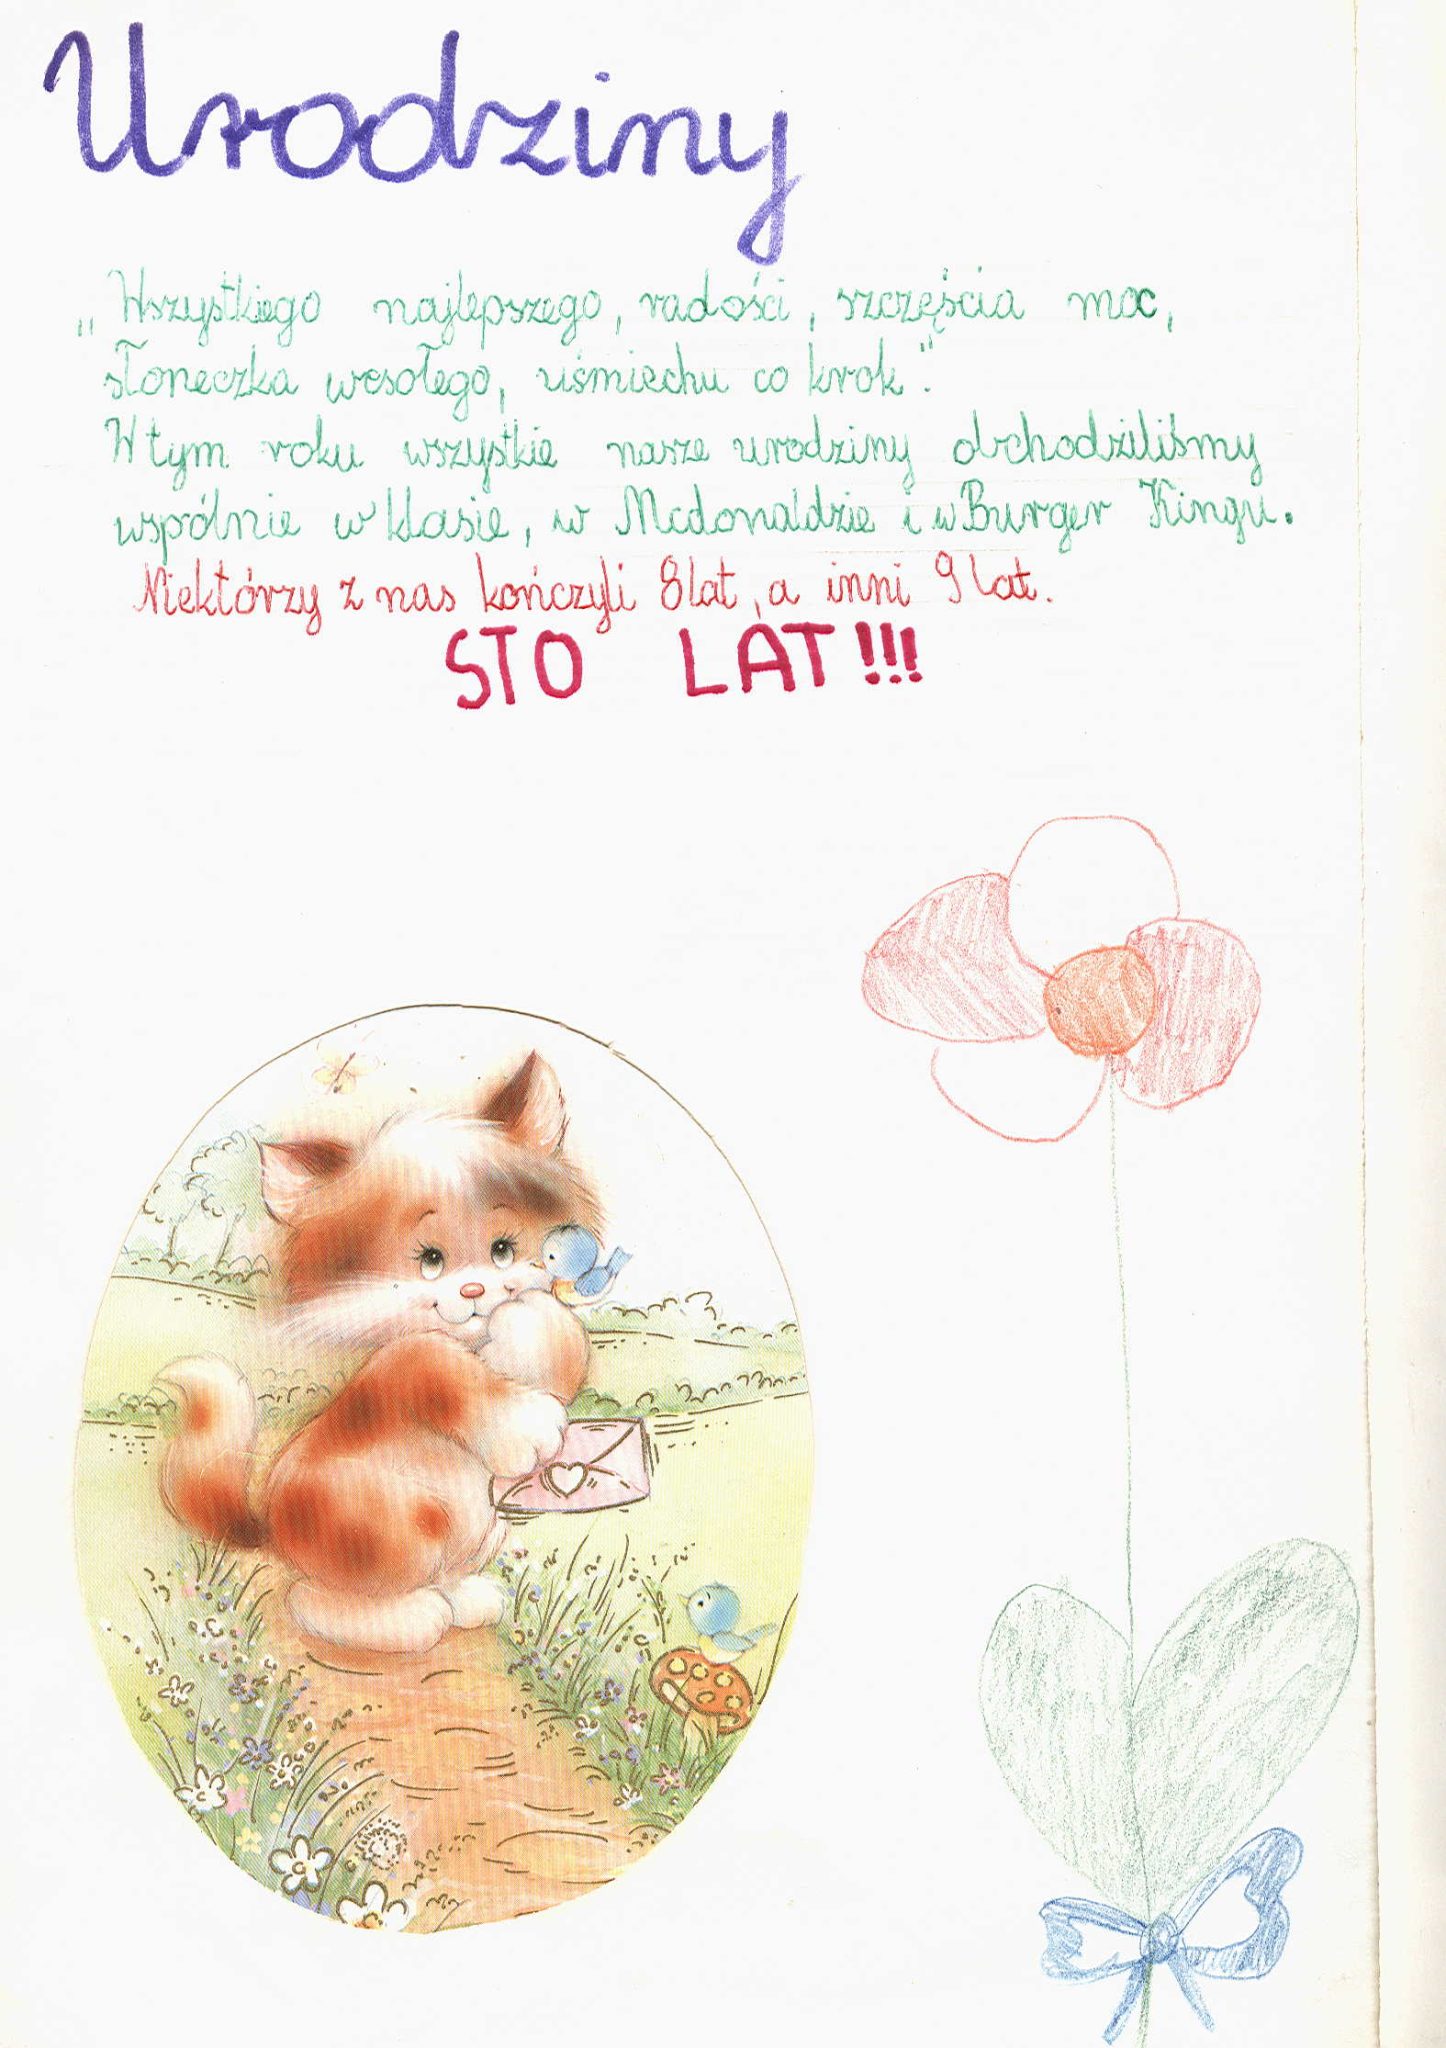 Urodziny
„Wszystkiego najlepszego, radości, szczęścia moc,
słoneczka wesołego, uśmiechu co krok".
W tym roku wszystkie nasze urodziny obchodziliśmy
wspólnie w klasie, w Mcdonaldzie i w Burger Kingu.
Niektórzy z nas kończyli 8 lat, a inni 9 lat.
STO LAT!!!